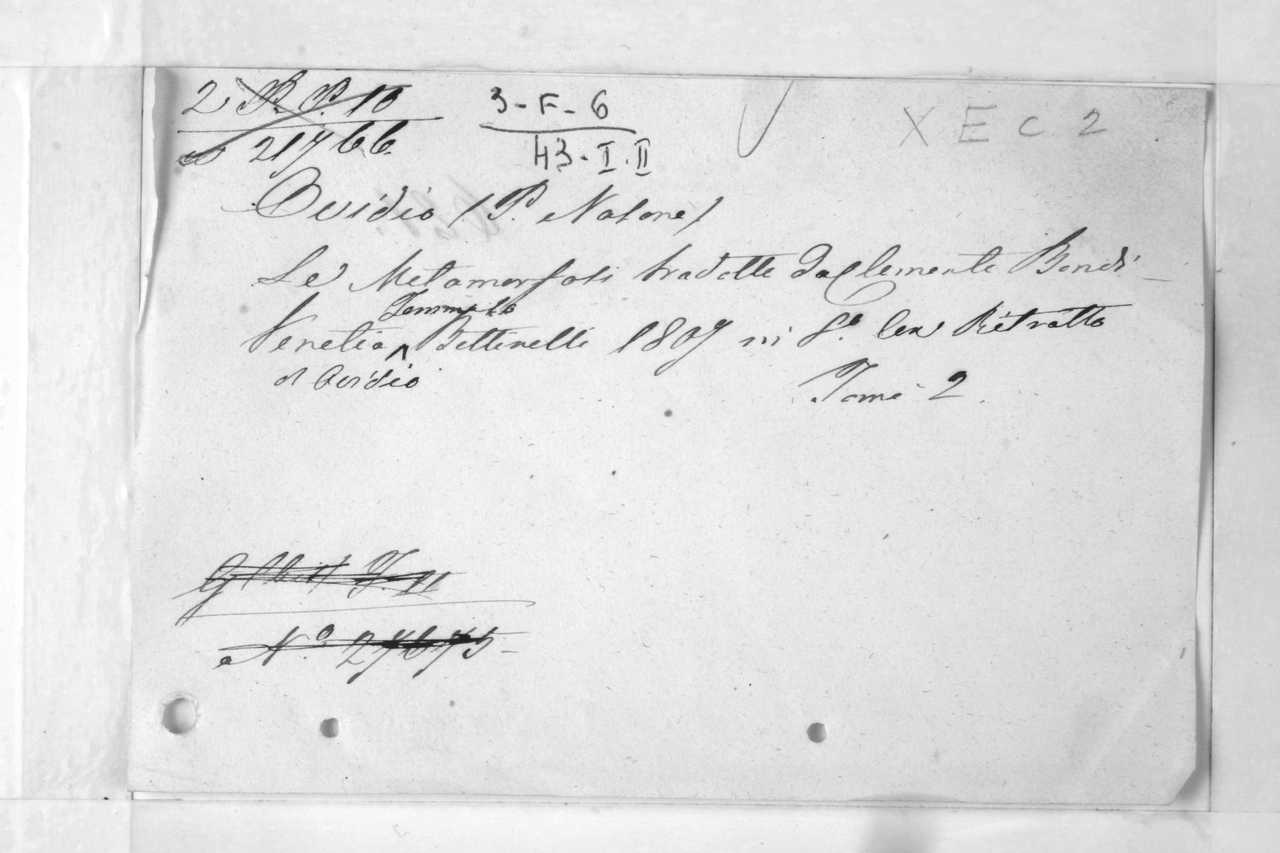 2 P. P. 10
21766.
3-F-6
43-I.II
X E C 2
Ovidio (P. Nasone)
Le Metamorfosi tradotte da Clemente Bondi -
Venezia Tommaso Bettinelli 1807 in 8.° con Ritratto
di Ovidio
Tomi 2.
N.° 27675-